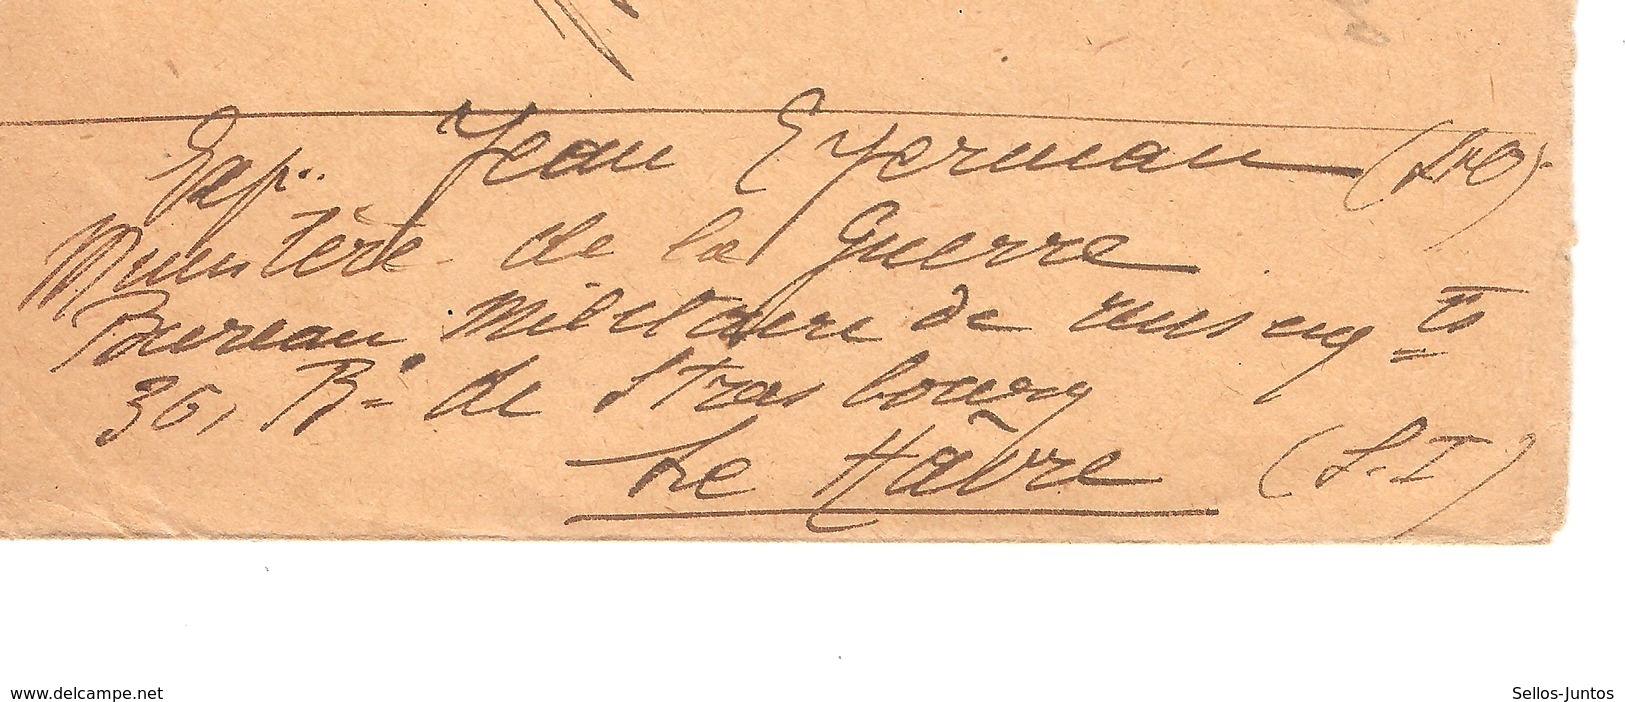 Exp. Jean Eyerman
Ministère de la Guerre
Bureau Militaire de renseig=ts
36, Bd de Strasbourg
Le Hâvre (S.I)
www.delcampe.net
Sellos-Juntos